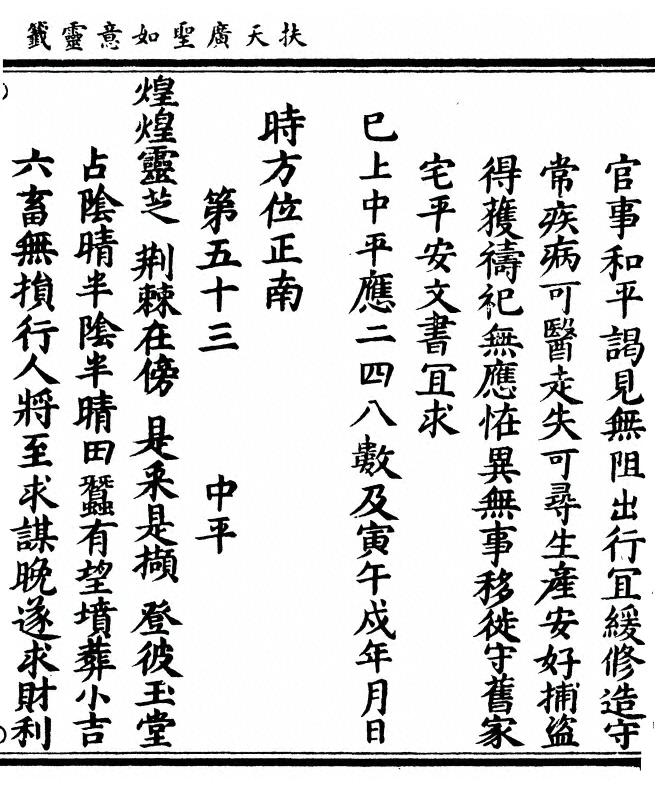 扶天廣聖如意靈籤
官事和平謁見無阻出行冝緩修造守
常疾病可醫走失可尋生產安好捕盜
得獲禱祀無應恠異無事移徙守舊家
宅平安文書冝求
巳上中平應二四八數及寅午戍年月日
時方位正南
第五十三 中平
煌煌靈芝 荆棘在傍 是采是擷 登彼玉堂
占陰晴半陰半晴田蠶有望墳葬小吉
六畜無損行人將至求謀晚遂求財利